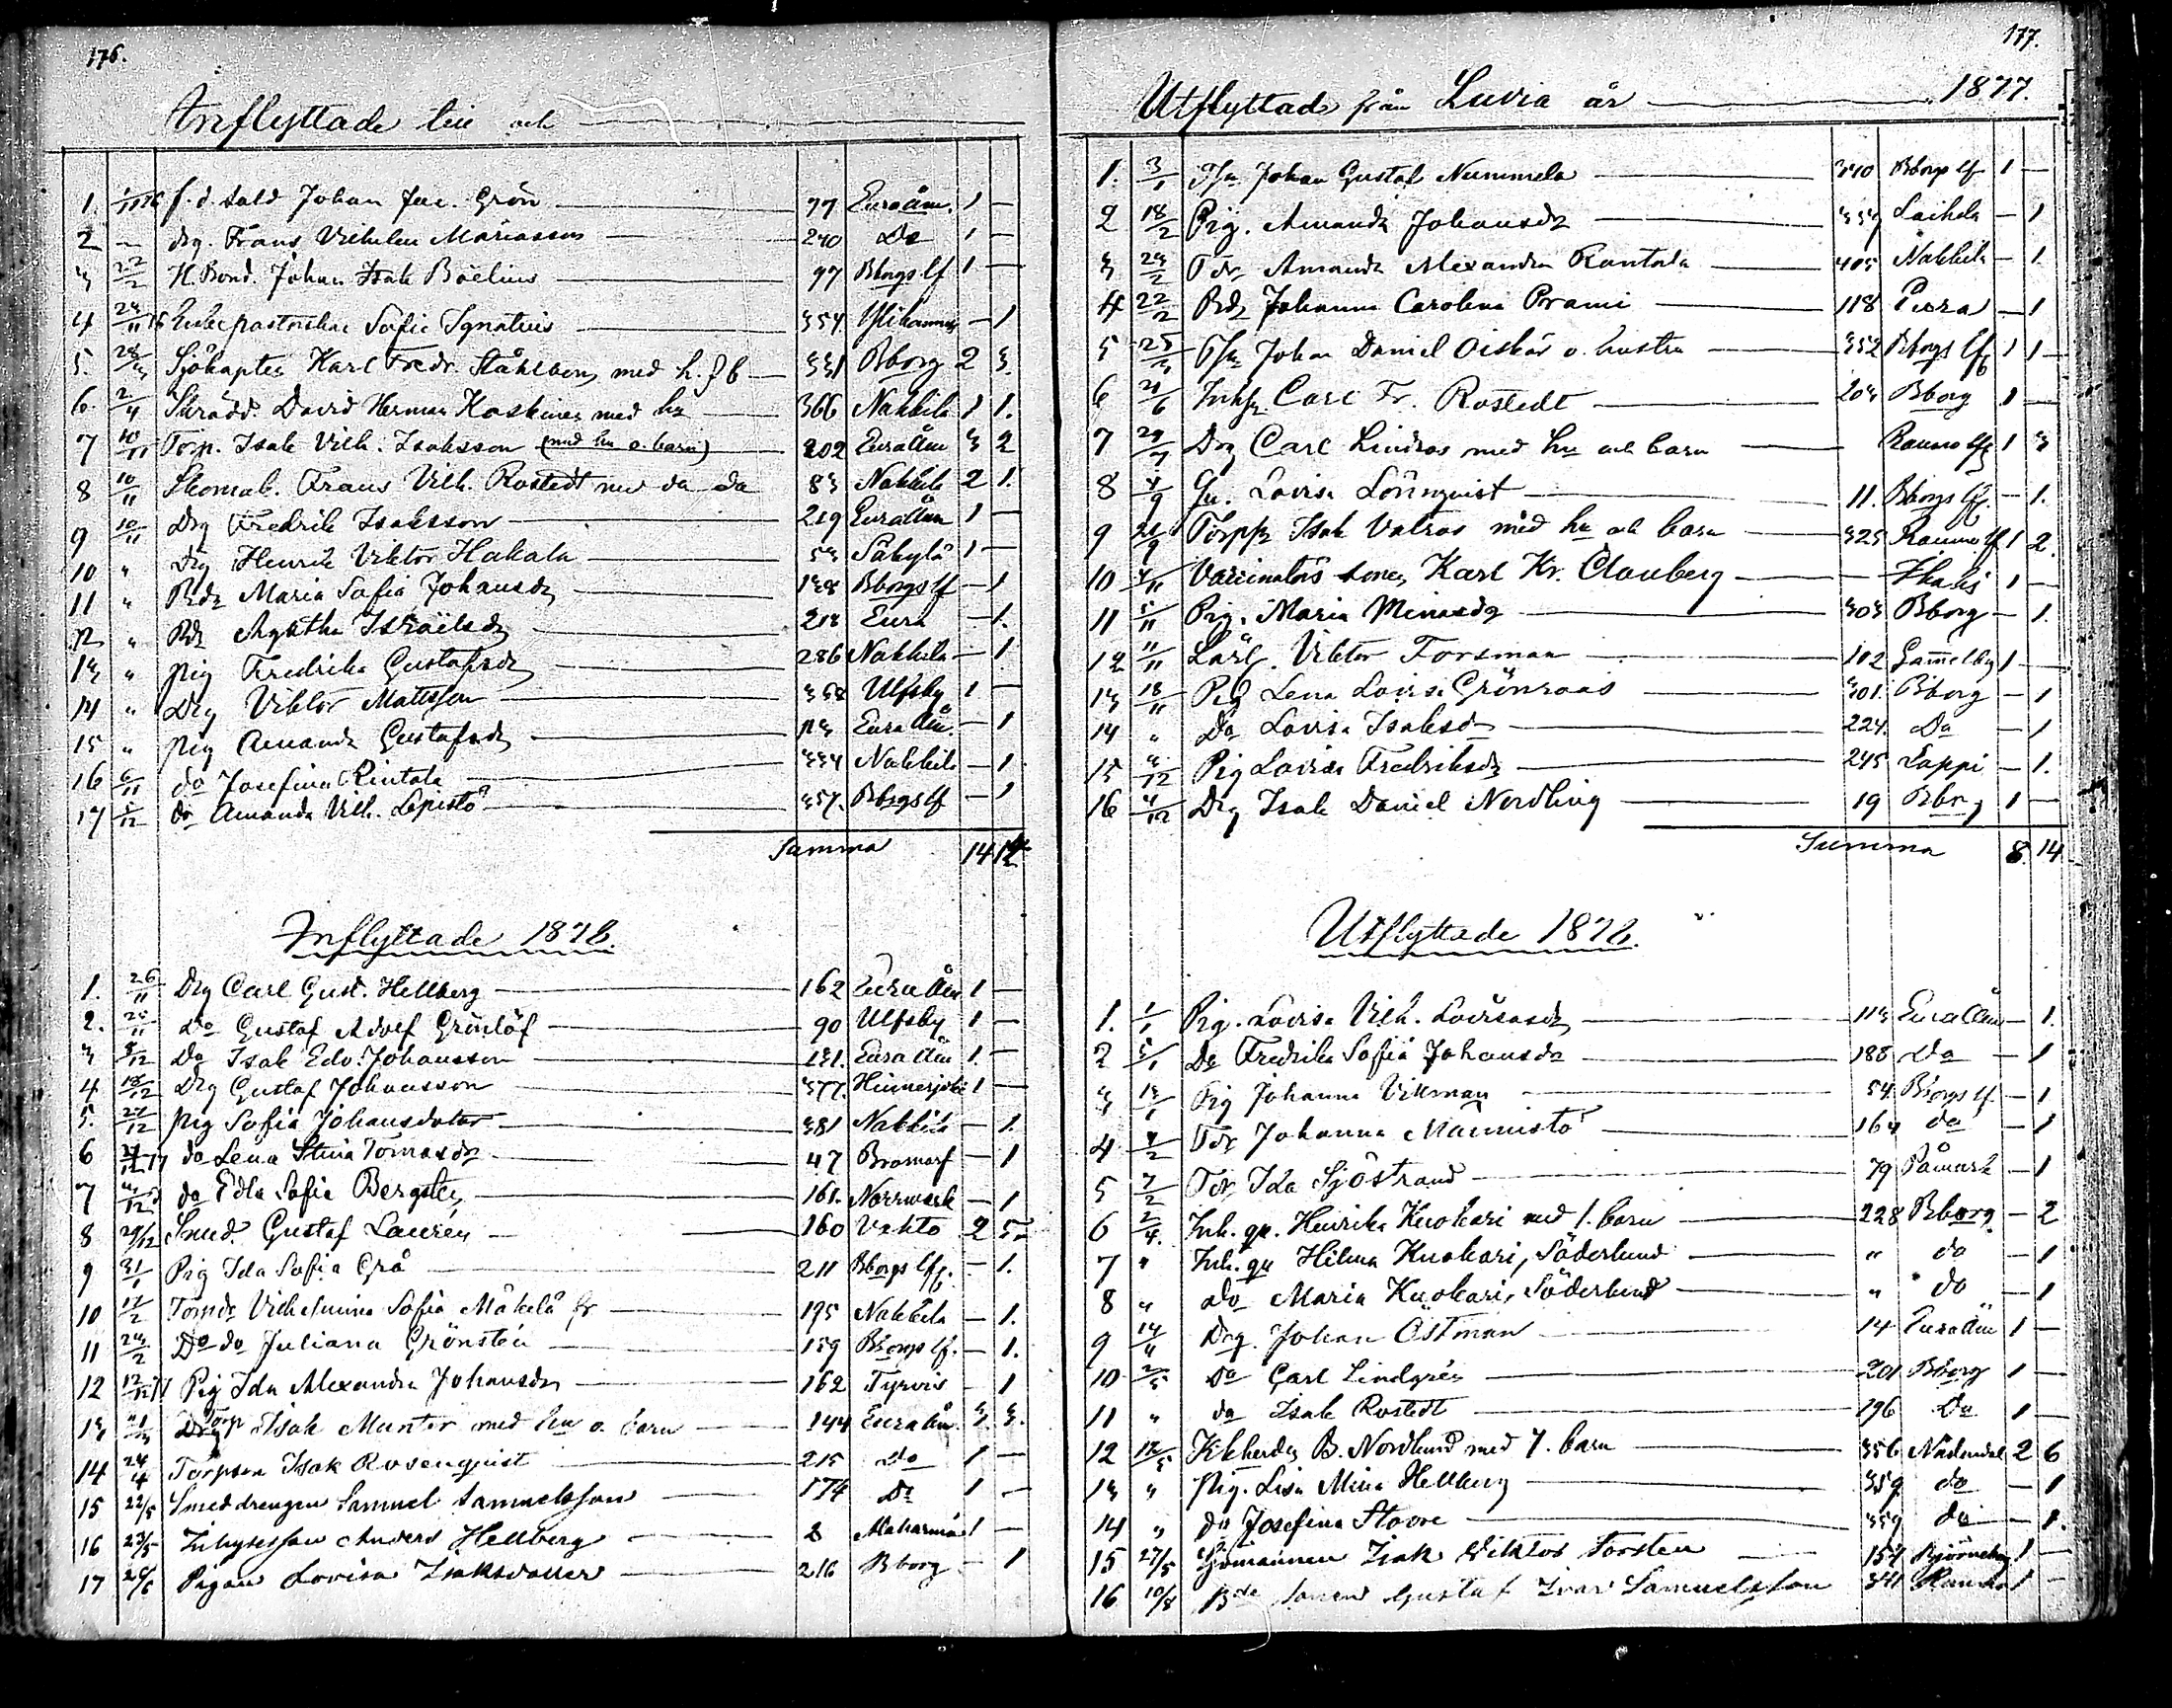 176.
Inflyttade till och
1. 1/11 76 f. d. sold Johan Jac. Grön 77 Euraåm. 1 —
2 — drg. Frans Vilhelm Mariasson 240 Do 1 —
3 22/2 H. Bond. Johan Isak Boëlius 97 Bborgs lf 1 —
4 24/11 76 Enkepastorskan Sofie Ignatius 354 — 1
5. 28/3 Sjökapten Karl Fredr. Ståhlberg med h. o b 331 Bborg 2 3.
6. 2/4 Skrädd. David Herman Koskinen med hu 366 Nakkila 1 1.
7 10/11 Torp. Isak Vilh. Isaksson (med hu o. barn) 202 Euraåm 3 2
8 10/11 Skomak. Frans Vilh. Rostedt med da da 83 Nakkila 2 1.
9 10/11 Drg Fredrik Isaksson 219 Euraåm 1 —
10 " Drg Henrik Viktor Hakala 53 Säkylä 1 —
11 " Bdr Maria Sofia Johansdr 138 Bborgs lf — 1
12 " Bdr Agatha Israëlsdr 218 Eura — 1.
13 " Pig Fredrika Gustafsdr 286 Nakkila — 1
14 " Drg Viktor Mattsson 358 Ulfsby 1 —
15 " Pig Amanda Gustafsdr 123 Euraåm. — 1
16 6/11 do Josefina Rintala 334 Nakkila — 1
17 5/12 do Amanda Vilh. Lepistö 357. Bborgs lf — 1
Summa 14 14
Inflyttade 1878.
1. 26/11 Drg Carl Gust. Hellberg 162 Euraåm 1 —
2. 24/11 Do Gustaf Adolf Grönlöf 90 Ulfsby 1 —
3 8/12 Do Isak Edv. Johansson 131. Euraåm 1. —
4 18/12 Drg Gustaf Johansson 377. Hinnerjoki 1 —
5. 27/12 Pig Sofia Johansdotter 381 Nakkila — 1.
6 77 do Lena Stina Tomasdr 47 Bromarf — 1
7 do Edla Sofia Bergsten 161. Norrmark — 1
8 29/12 Smed Gustaf Laurén 160 Vahto 2 5
9 31/1 Pig Ida Sofia Grå 211 Bborgs lf. — 1.
10 17/2 Torpdr Vilhelmina Sofia Mäkelä 195 Nakkila — 1.
11 24/2 Do do Juliana Grönstén 159 Bborgs lf. — 1.
12 12/12 77 Pig Ida Alexandra Johansdr 162 Tyrvis — 1
13 Torp Isak Munter med hu o. barn 144 Euraåm. 3 3.
14 24/4 Torpson Isak Rosenqvist 215 Do 1 —
15 22/5 Smeddrengen Samuel Samuelsson 174 Do 1 —
16 23/5 Inhysesson Anders Hellberg 2 1 —
17 Pigan Lovisa Isaksdotter 216 Bborg — 1
177.
Utflyttade från Luvia år 1877.
1. 3/1 Johan Gustaf Nummela 340 Bborgs lf 1 —
2 18/2 Pig. Amanda Johansdr 359 Laihela — 1
3 24/2 Tdr Amanda Alexandra Rantala 405 Nakkila — 1.
4 22/2 Bdr Johanna Carolina Prami 118 — 1
5 25/3 Johan Daniel Oiskär o. hustru 352 Bborgs lf 1 1
6 21/6 Carl Fr. Rostedt 204 Bborg 1 —
7 29/7 Drg Carl Lindros med hu och barn Raumo lf 1 3
8 4/9 Lovisa Lönnqvist 11. Bborgs lf. — 1.
9 21/9 Isak Valros med hu och barn 325 Raumo lf 1 2.
10 4/11 Vaccinators sonen Karl Kr. Clauberg — 1 —
11 5/11 Pig. Maria Minasdr 303 Bborg — 1.
12 11/11 Lärl. Viktor Forsman 102 Gammelby 1 —
13 18/11 Pig Lena Lovisa Grönroos 301. Bborg — 1
14 " Do Lovisa Isaksdr 224. Do — 1
15 Pig Lovisa Fredriksdr 245 Lappi — 1.
16 4/12 Drg Isak Daniel Nordling 19 Bborg 1 —
Summa 8. 14
Utflyttade 1878.
1. 1/1 Pig. Lovisa Vilh. Lovisasdr 113 Euraåm — 1.
2 5/1 Do Fredrika Sofia Johansdr 188 Do — 1
3 Pig Johanna Vikman 54. Bborgs lf — 1
4 4/2 Tdr Johanna Männistö 164 do — 1
5 7/2 Tdr Ida Sjöstrand 79 Påmark — 1
6 2/4. Inh. qv. Henrika Kuokari med 1. barn 228 Bborg. — 2
7 " Inh. qv Hilma Kuokari, Söderlund " do — 1
8 " do Maria Kuokari, Söderlund " do — 1
9 14/4 Drg. Johan Östman 14 Euraåm 1 —
10 2/5 Do Carl Lindgrén 201 Bborg 1 —
11 " do Isak Rostedt 196 Do 1 —
12 12/5 B. Nordlund med 7. barn 356 Nådendal 2 6
13 " Pig. Lisa Mina Hellberg 359 do — 1
14 " do Josefina Stoore 359 do — 1.
15 27/5 Sjömannen Isak Viktor Torstén 154 Björneborg 1 —
16 10/8 Bde sonen Gustaf Ivar Samuelsson 341 Raumo 1 —